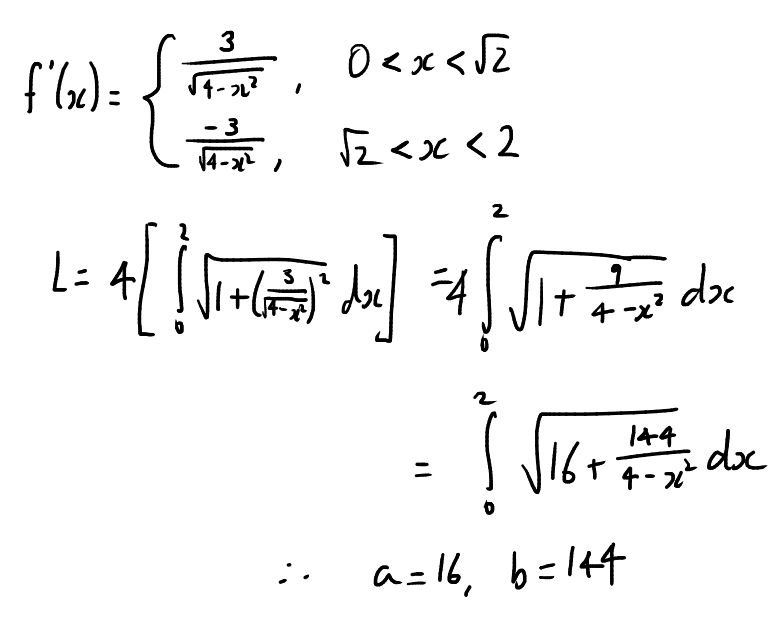 f'(x) = { 3/√(4-x²), 0 < x < √2
-3/√(4-x²), √2 < x < 2
L = 4[∫₀² √(1+(3/√(4-x²))²) dx] = 4∫₀² √(1 + 9/(4-x²)) dx
= ∫₀² √(16 + 144/(4-x²)) dx
∴ a = 16, b = 144